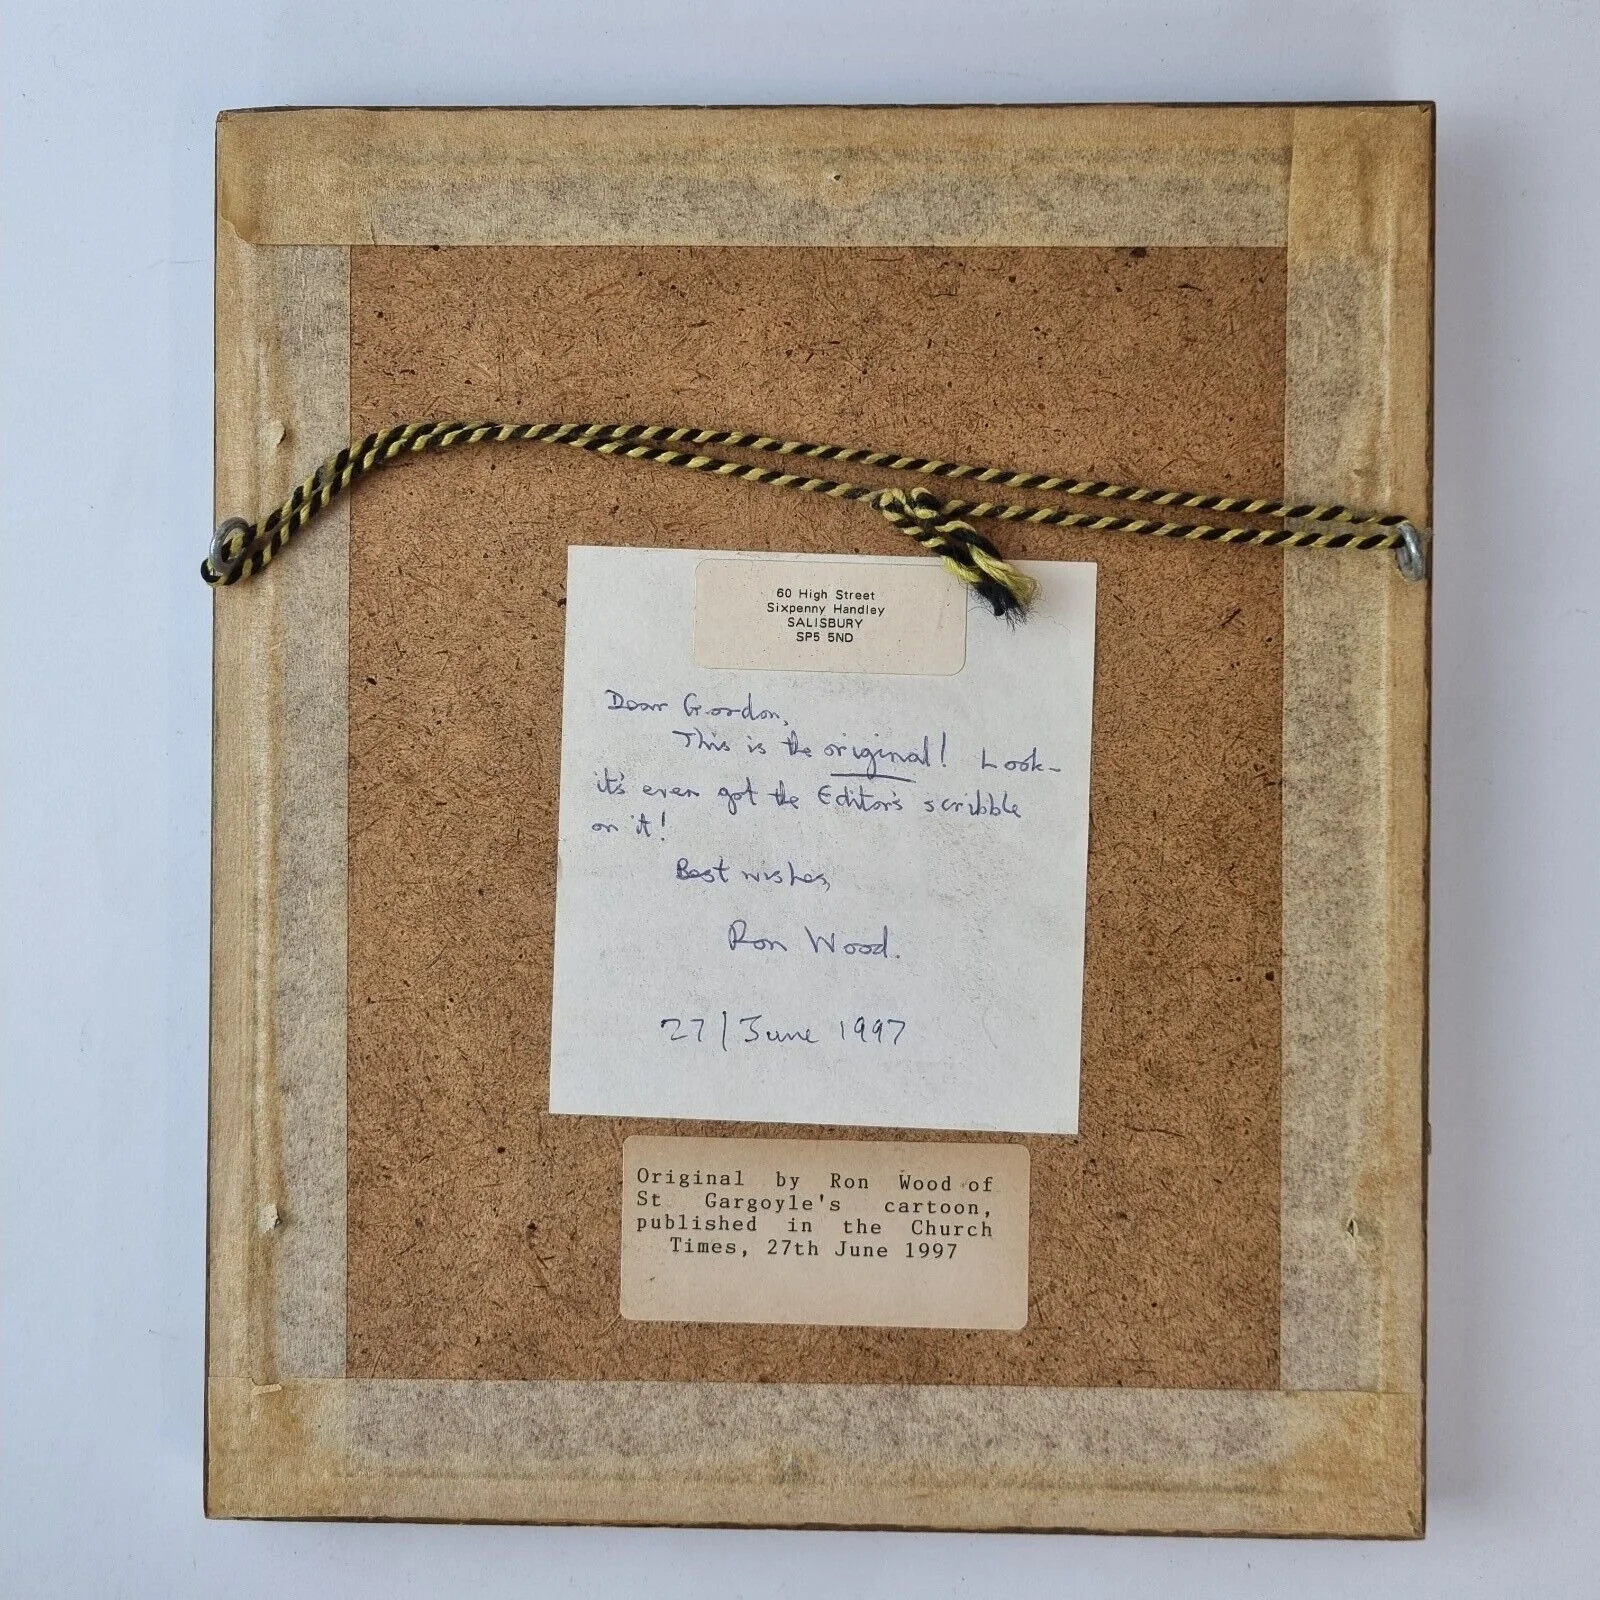 60 High Street
Sixpenny Handley
SALISBURY
SP5 5ND
Dear Gordon,
This is the original! Look-
it's even got the Editor's scribble
on it!
Best wishes,
Ron Wood.
27/June 1997
Original by Ron Wood of
St Gargoyle's cartoon,
published in the Church
Times, 27th June 1997